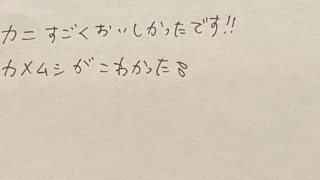 カニ すごくおいしかったです!!
カメムシ がこわかった8